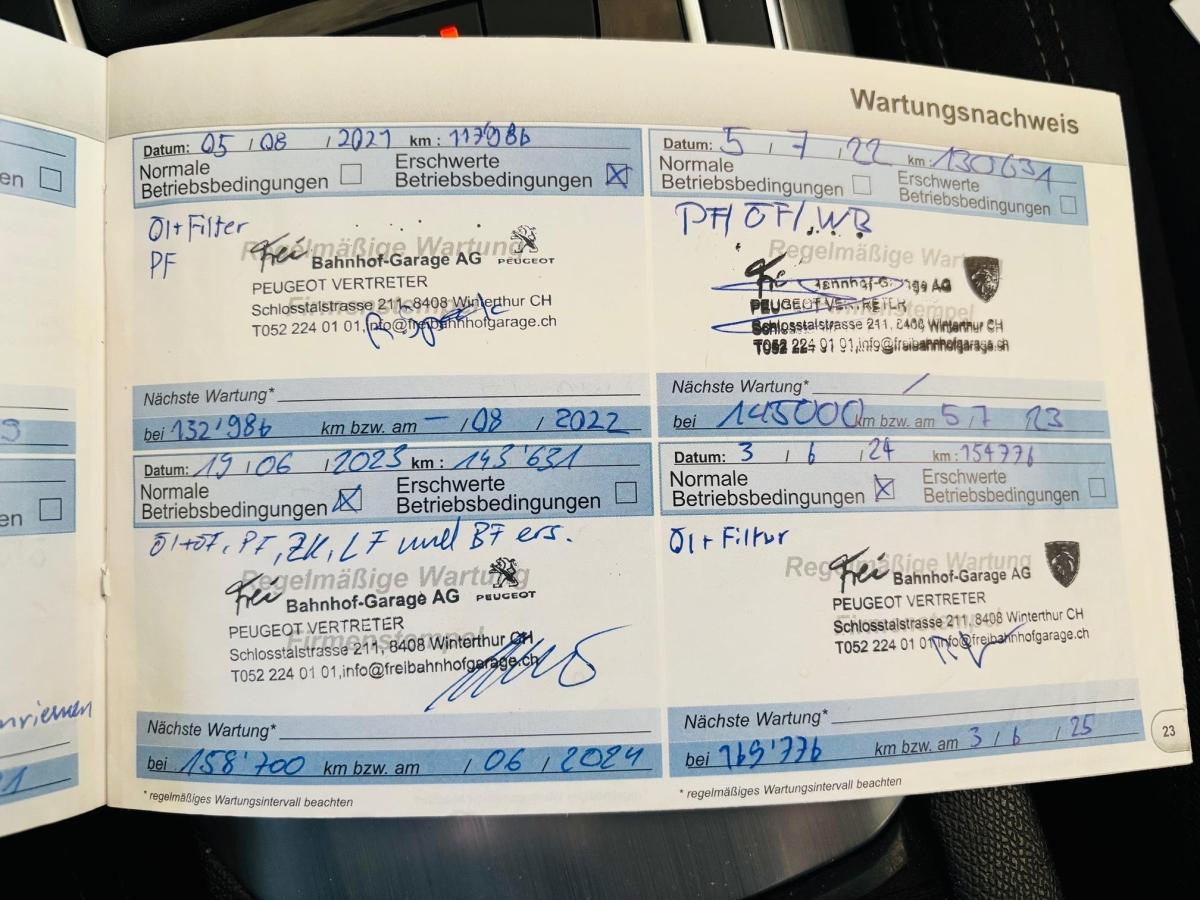 Wartungsnachweis
Datum: 05 / 08 / 2021 km : 117'986
Normale Betriebsbedingungen
Erschwerte Betriebsbedingungen X
Öl+Filter
PF
Regelmäßige Wartung
Frei Bahnhof-Garage AG PEUGEOT
PEUGEOT VERTRETER
Firmenstempel
Schlosstalstrasse 211, 8408 Winterthur CH
T052 224 01 01, info@freibahnhofgarage.ch
Nächste Wartung*
bei 132'986 km bzw. am – / 08 / 2022
Datum: 5 / 7 / 22 km : 130631
Normale Betriebsbedingungen
Erschwerte Betriebsbedingungen
PF/ ÖF/ WB
Regelmäßige Wartung
Frei Bahnhof-Garage AG
PEUGEOT VERTRETER
Firmenstempel
Schlosstalstrasse 211, 8408 Winterthur CH
T052 224 01 01, info@freibahnhofgarage.ch
Nächste Wartung* /
bei 145000 km bzw. am 5 / 7 23
Datum: 19 / 06 / 2023 km : 143'631
Normale Betriebsbedingungen X
Erschwerte Betriebsbedingungen
Öl+ÖF, PF, ZK, LF und BF ers.
Regelmäßige Wartung
Frei Bahnhof-Garage AG PEUGEOT
PEUGEOT VERTRETER
Firmenstempel
Schlosstalstrasse 211, 8408 Winterthur CH
T052 224 01 01, info@freibahnhofgarage.ch
Nächste Wartung*
bei 158'700 km bzw. am / 06 / 2024
* regelmäßiges Wartungsintervall beachten
Datum: 3 / 6 / 24 km : 154776
Normale Betriebsbedingungen X
Erschwerte Betriebsbedingungen
Öl+Filter
Regelmäßige Wartung
Frei Bahnhof-Garage AG
PEUGEOT VERTRETER
Schlosstalstrasse 211, 8408 Winterthur CH
T052 224 01 01, info@freibahnhofgarage.ch
Nächste Wartung*
bei 169'776 km bzw. am 3 / 6 / 25
* regelmäßiges Wartungsintervall beachten
23